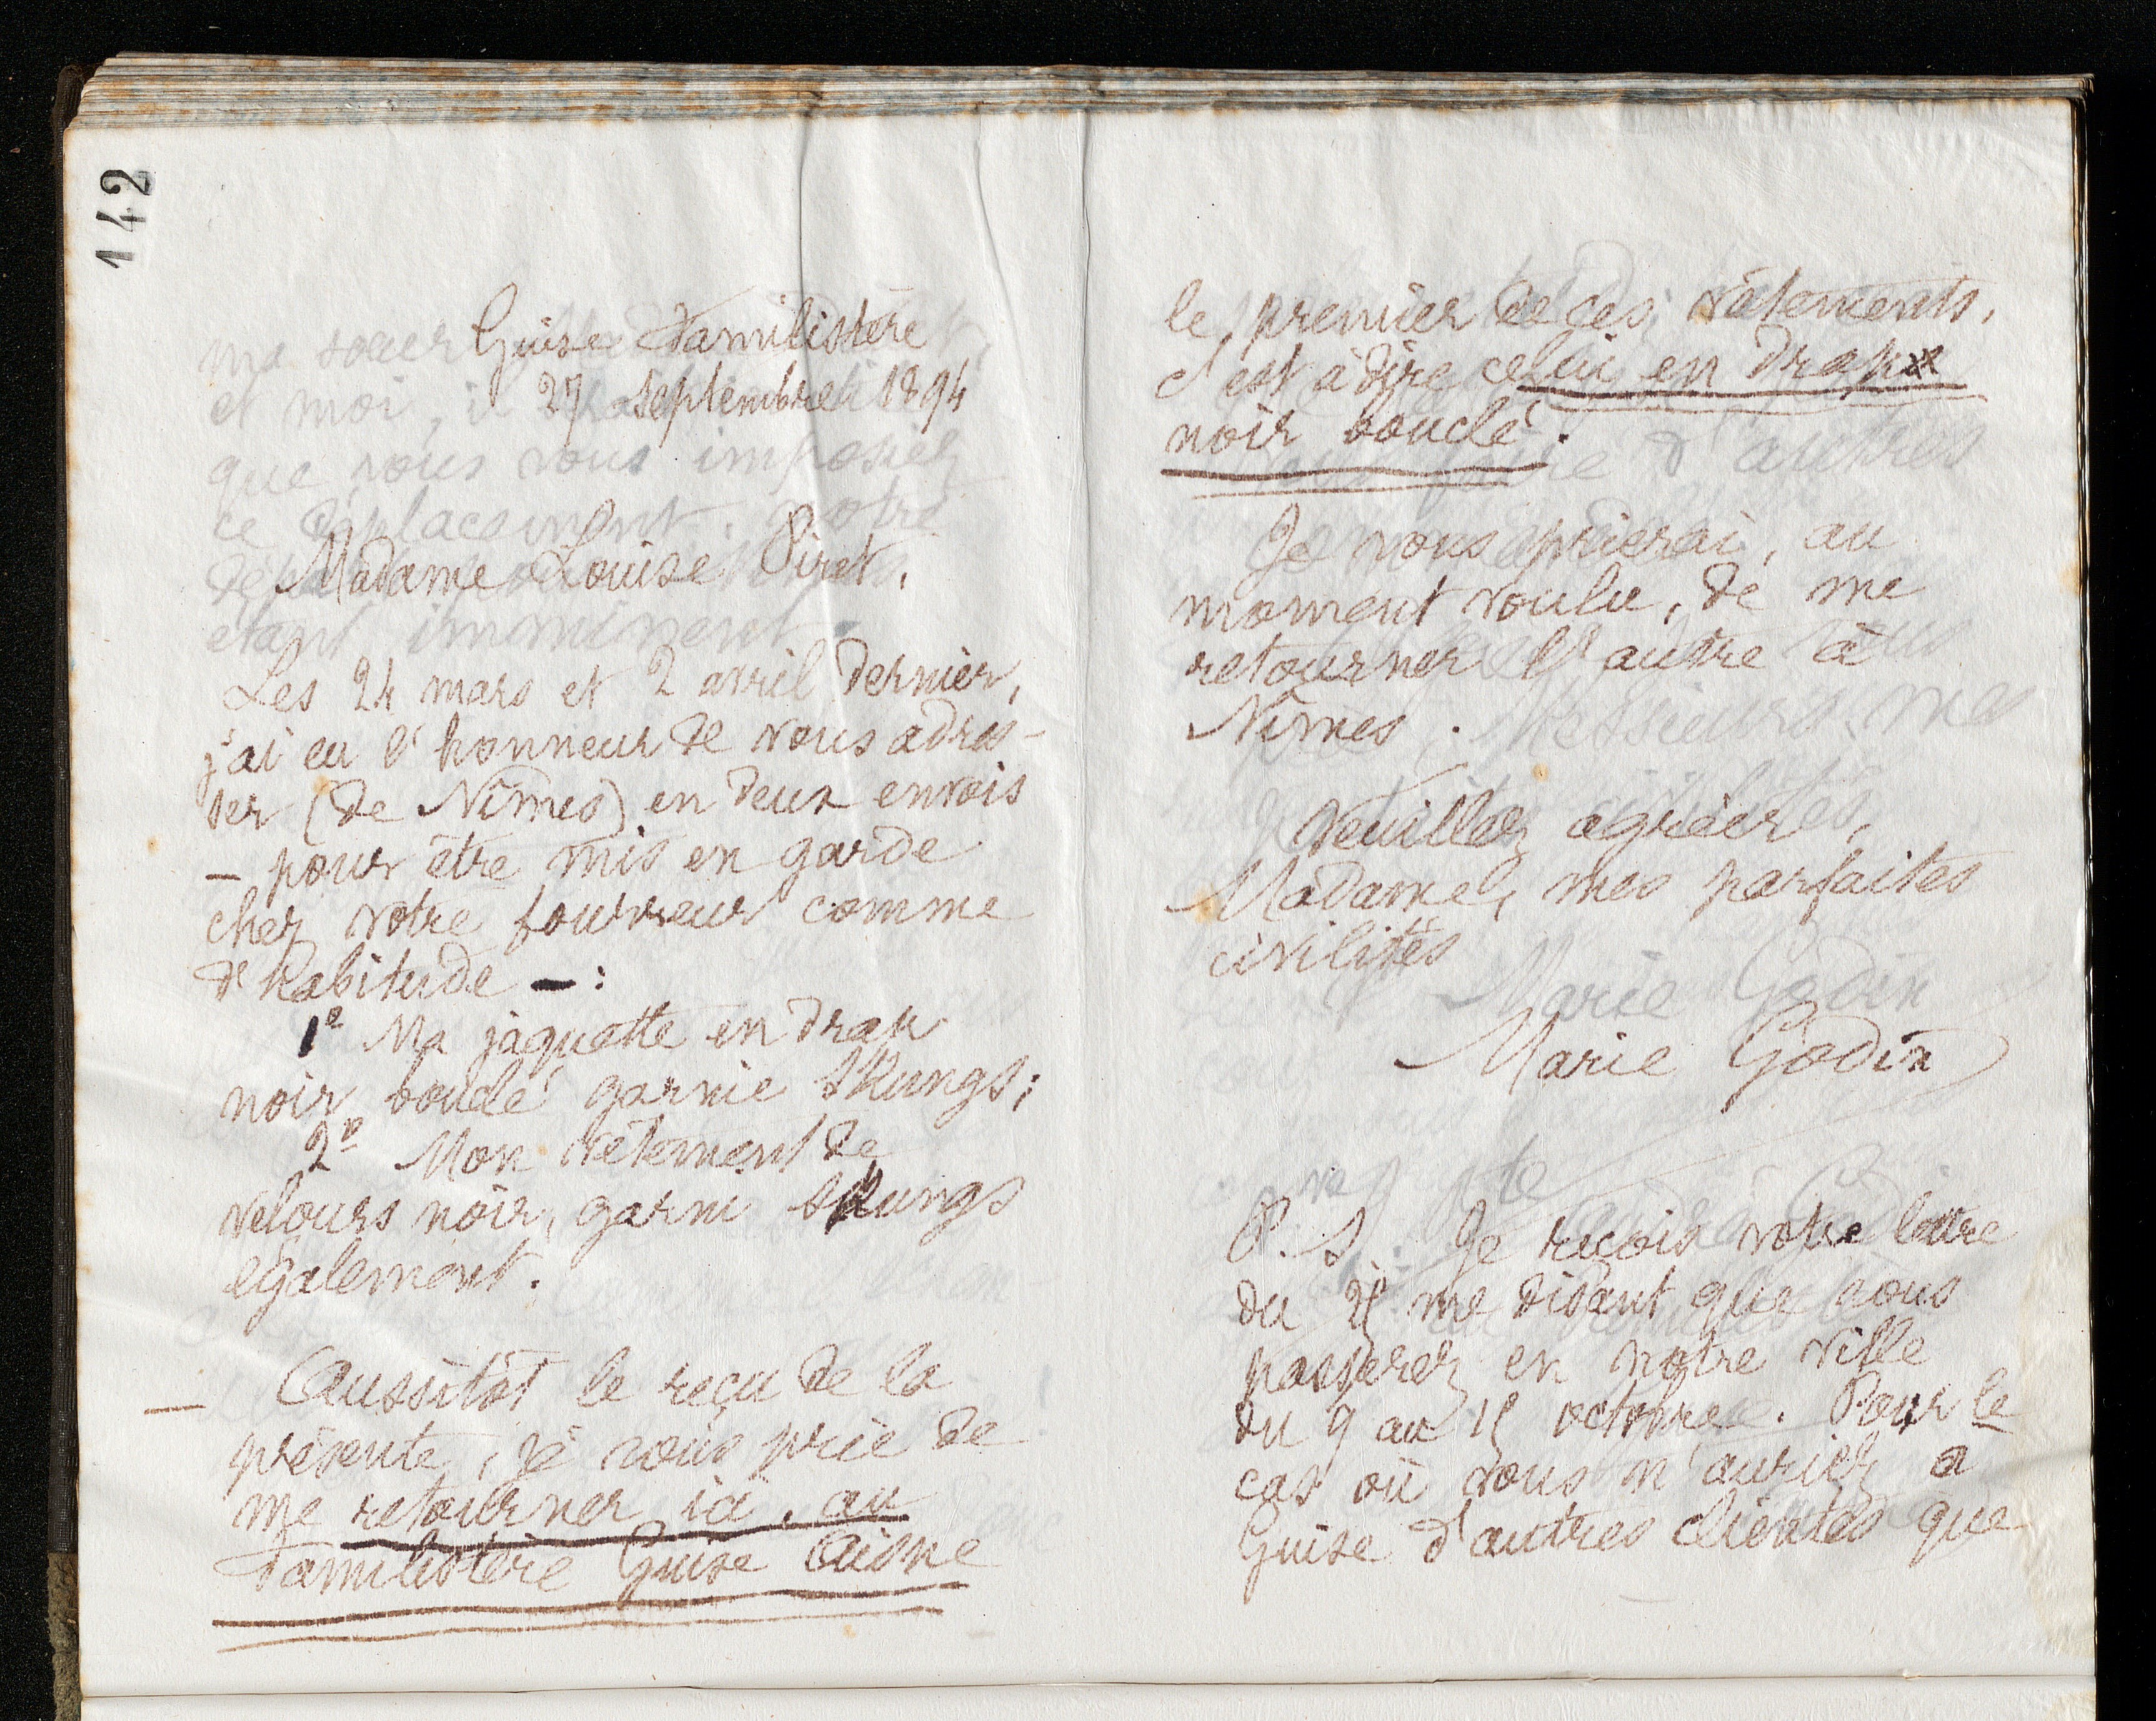 142
Guise Familistère
27 septembre 1894
Madame Louise Piret,
Les 24 mars et 2 avril dernier,
j'ai eu l'honneur de vous adres-
ser (de Nîmes) en deux envois
– pour être mis en garde
chez votre fourreur comme
d'habitude – :
1º Ma jaquette en drap
noir bouclé garnie skungs;
2º Mon vêtement de
velours noir, garni skungs
également.
— Aussitôt le reçu de la
présente, je vous prie de
me retourner ici, au
Familistère Guise Aisne
le premier de ces vêtements,
c'est à dire celui en drap
noir bouclé.
Je vous prierai, au
moment voulu, de me
retourner l'autre à
Nîmes.
Veuillez agréer,
Madame, mes parfaites
civilités
Marie Godin
P. S. Je reçois votre lettre
du me disant que vous
passerez en notre ville
du 9 au 15 octobre. Pour le
cas où vous n'auriez à
Guise d'autres clientes que
ma soeur
et moi,
que vous vous imposiez
ce déplacement. notre
étant imminent.